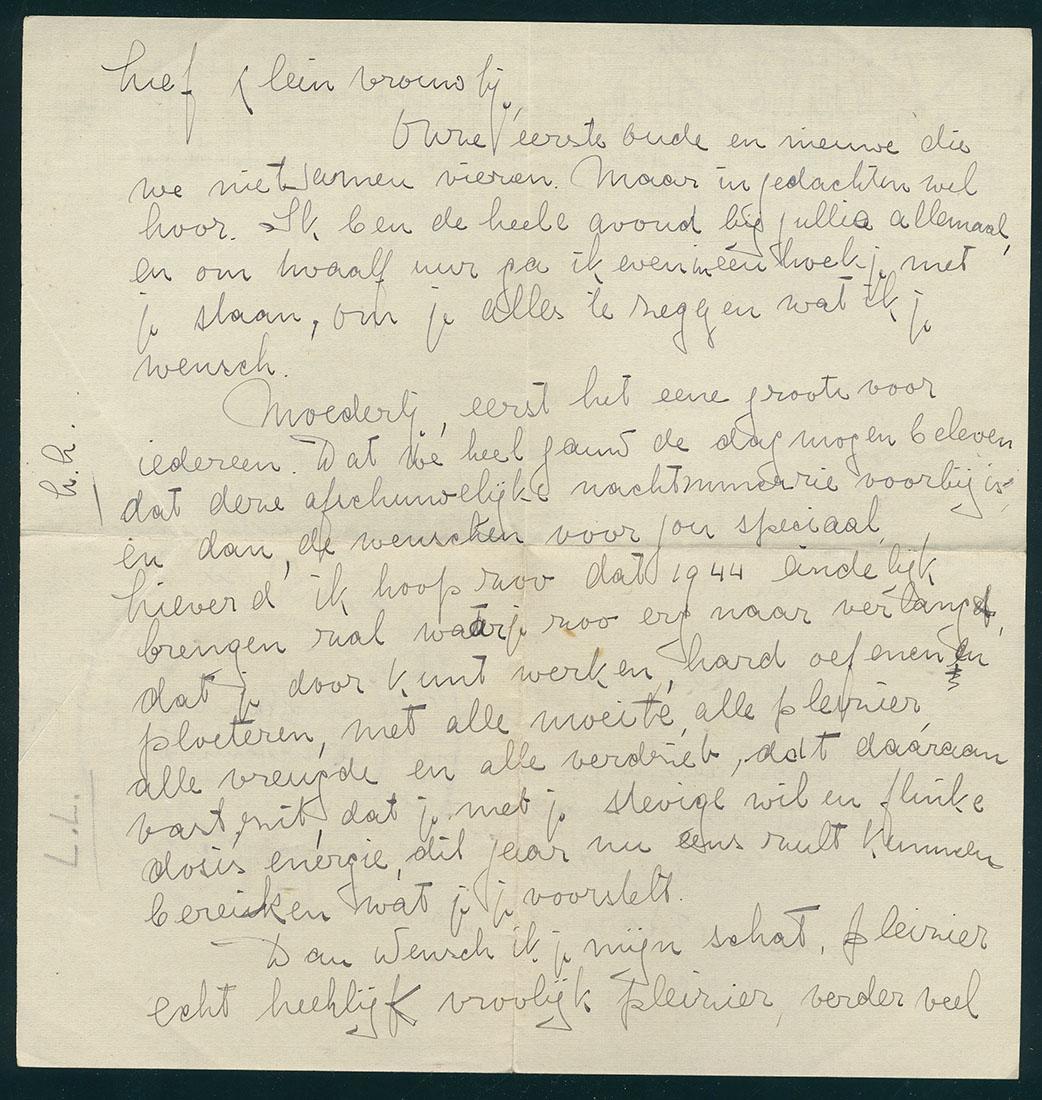 Lief klein vrouwtj,
Onze eerste oude en nieuwe die
we niet samen vieren. Maar in gedachten wel
hoor. Ik ben de heele avond bij jullie allemaal,
en om twaalf uur ga ik even in één hoekj met
j staan, om j alles te zeggen wat ik j
wensch.
Moedertj, eerst het eene groote voor
iedereen. Dat we heel gauw de dag mogen beleven
dat deze afschuwelijke nachtmmerrie voorbij is
en dan, de wenschen voor jou speciaal.
Lieverd ik hoop zoo dat 1944 einde lijk
brengen zal waar j zoo erg naar verlangt,
dat j door kunt werken, hard oefenen en
ploeteren, met alle moeite, alle pleizier,
alle vreugde en alle verdriet, dat daaraan
vast zit, dat j met j stevige wil en flinke
dosis energie, dit jaar nu eens zult kunnen
bereiken wat j j voorstelt.
Dan wensch ik j mijn schat, pleizier
echt heerlijk vroolijk pleizier, verder veel
h.h.
L.L.